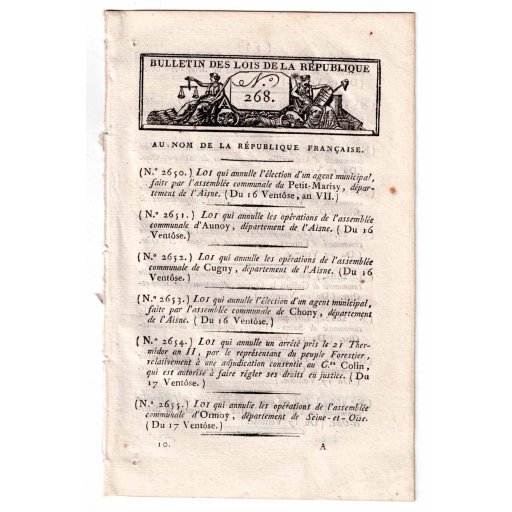 BULLETIN DES LOIS DE LA RÉPUBLIQUE
N.º
268.
AU NOM DE LA RÉPUBLIQUE FRANÇAISE.
(N.º 2650.) LOI qui annulle l'élection d'un agent municipal,
faite par l'assemblée communale du Petit-Marisy, dépar-
tement de l'Aisne. (Du 16 Ventôse, an VII.)
(N.º 2651.) LOI qui annulle les opérations de l'assemblée
communale d'Aunoy, département de l'Aisne. (Du 16
Ventôse.)
(N.º 2652.) LOI qui annulle les opérations de l'assemblée
communale de Cugny, département de l'Aisne. (Du 16
Ventôse.)
(N.º 2653.) LOI qui annulle l'élection d'un agent municipal,
faite par l'assemblée communale de Chony, département
de l'Aisne. (Du 16 Ventôse.)
(N.º 2654.) LOI qui annulle un arrêté pris le 21 Ther-
midor an II, par le représentant du peuple Forestier,
relativement à une adjudication consentie au C.en Colin,
qui est autorisé à faire régler ses droits en justice. (Du
17 Ventôse.)
(N.º 2655.) LOI qui annulle les opérations de l'assemblée
communale d'Ormoy, département de Seine-et-Oise.
(Du 17 Ventôse.)
10. A